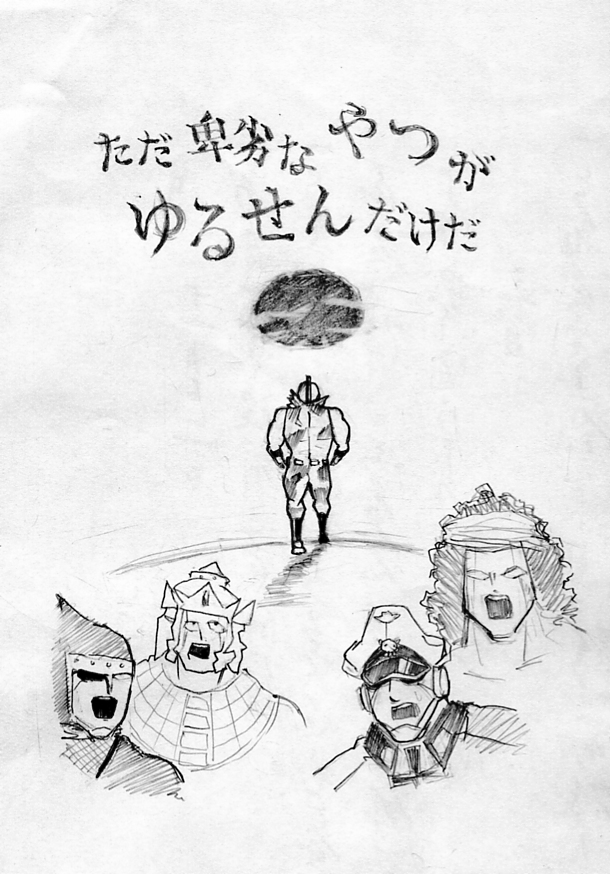 ただ卑劣なやつが
ゆるせんだけだ